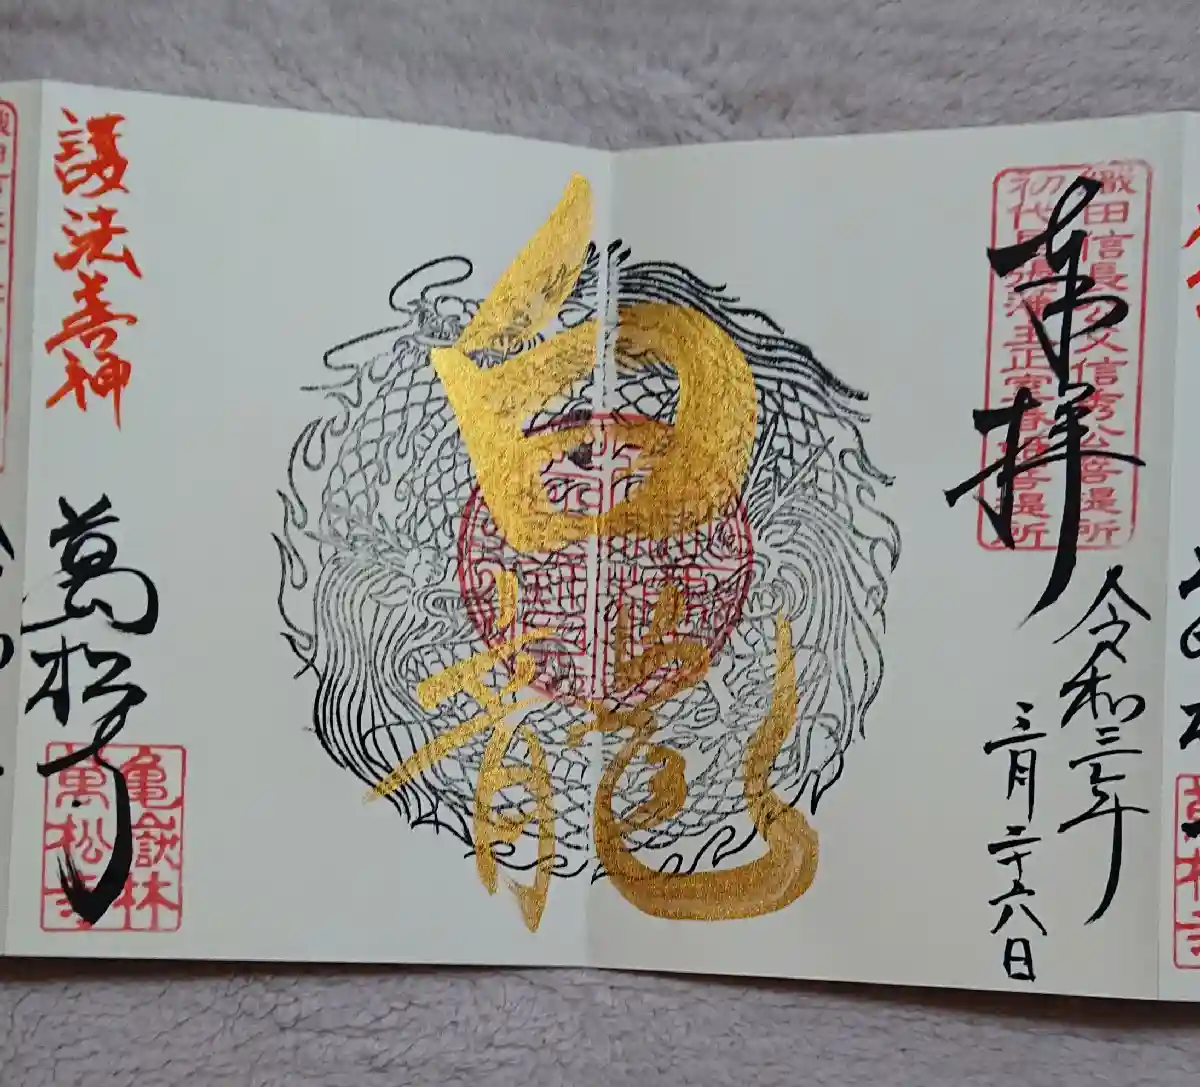 織田信長公父信秀公菩提所
初代尾張藩主正室春姫菩提所
奉拝
令和三年
三月二十六日
白龍
護法善神
萬松寺
亀嶽林
萬松寺